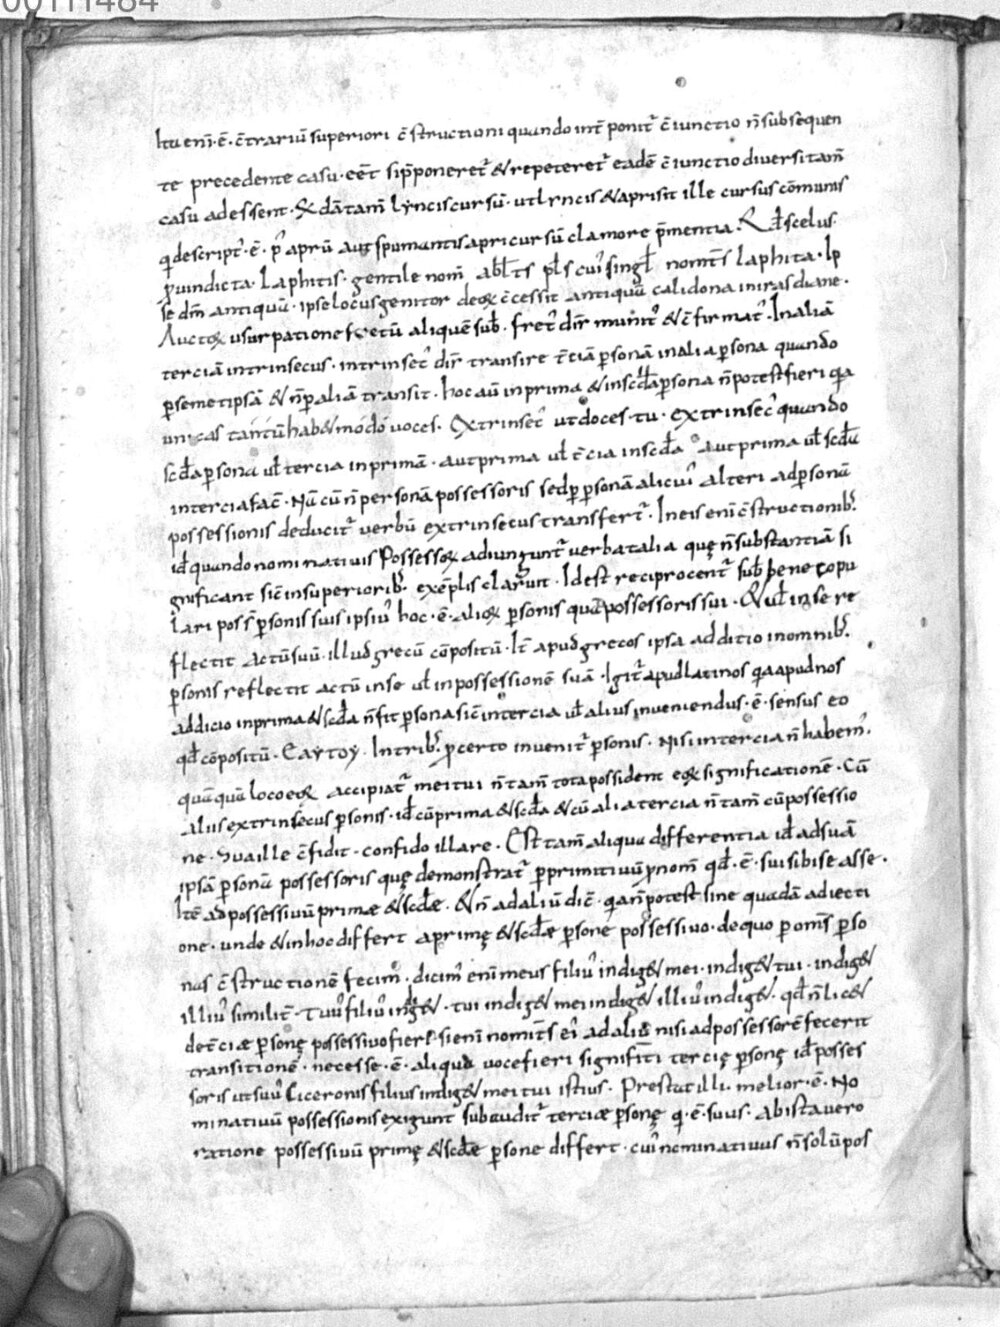 00111484
Ita enī·ē·c̄trariū superiori c̄structioni quando int̄ ponit᷑ c̄iunctio n̄ subsequen
te precedente casu·eēt si p̄poneret᷑ & repeteret᷑ eadē c̄iunctio diversitam̄
casu adessent· dātam̄ lyncis cursū·ut lyncis & apri sit ille cursus cōmunis
q descript᷑·ē·p᷒ aprū aut spumantis apri cursū clamore p̄mentia. scelus
ꝓ vindicta· Laphitis·gentile nom̄ abłts płs cui᷒ singł nomt̄s laphita· Ip
se dm̄ antiquū·ipse locus genitor deoꝝ c̄cessit antiquū calidona in iras diane·
Auctoꝝ usurpatione fretū aliquē sub᷒· fret᷒ dir̄ munit᷒ & c̄firmat᷒· In aliā
terciā intrinsecus·intrinsec᷒ dir̄ transire t̄ciā ꝑsonā in alia ꝑsona quando
ꝑ semetipsā & n̄ ꝑ aliā transit·hoc aū in prima & in scđa ꝑsona n̄ potest fieri qa
unicas tantū hab& modo voces· Extrinsec᷒ ut doces·tu·extrinsec᷒ quando
scđa ꝑsona uł tercia in primā·aut prima uł t̄cia in scđa aut prima uł scđa
in tercia fac̄·Nā cū n̄ personā possessoris sed ꝑ ꝑsonā alicui᷒ alteri ad ꝑsonā
possessionis deducit᷑ verbū extrinsecus transfert᷑· In eis enī c̄structionib᷒
iđ quando nominativis possessoꝝ adiungunt᷑ verba talia quę n̄ substantiā si
gnificant sic̄ in superiorib᷒ exēplis claꝝunt· Id est reciprocent᷑ sub᷒ bene copu
lari poss̄ ꝑsonis suis ipsi᷒ hoc·ē·alioꝝ ꝑsonis quā possessoris sui·& uł in se re
flectit actū suū·illud grecū cōpositū·It̄ apud grecos ipsa additio in omnib᷒
ꝑsonis reflectit actū in se uł in possessionē suā·Igit᷑ apud latinos qa apud nos
addicio in prima & scđa n̄ fit ꝑsona sic̄ in tercia uł alius inveniendus·ē·sensus eo
qđ cōpositū· ΕΑΥΤΟΥ· In trib᷒ ꝓcerto invenit᷑ ꝑsonis·nisi in tercia n̄ habem᷒·
quā quā loco eoꝝ accipiat᷑ mei tui n̄ tam̄ tota possident eoꝝ significationē·Cū
alius extrinsecus ꝑsonis·iđ cū prima & scđa & cū alia tercia n̄ tam̄ cū possessio
ne·Sua ille c̄fidit·confido illa re· Est tam̄ aliqua differentia iđ ad suā
ipsā ꝑsonā possessoris quę demonstrat᷑ ꝑ primitivū ꝓnom̄ qđ·ē·sui sibi se a se·
Itē ad possessivū primæ & scđæ·& n̄ ad aliū dic̄·qa n̄ potest sine quadā adiecti
one·unde & in hoc differt a primę & scđæ ꝑsone possessivo·de quo ꝑ om̄s ꝑso
nas c̄structionē fecim᷒·dicim᷒ enī meus filiu᷒ indig& mei·indig& tui·indig&
illiu᷒ similit̄·Tuu᷒ filiu᷒ indig&·tui indig& mei indig& illiu᷒ indig&·qđ n̄ lic&
de t̄ciæ ꝑsonę possessivo fieri·si enī nomit̄s ei᷒ ad aliū nisi ad possessorē fecerit
transitionē·necesse·ē·aliqua voce fieri significati tercię ꝑsonę iđ posses
soris ut suu᷒ Ciceronis filius indig& mei tui istius· Prestat illi·melior·ē·No
minativū possessionis exigunt subaudit᷑ terciæ ꝑsonę q·ē·suus·Ab ista vero
ratione possessivū primę & scđæ ꝑsone differt·cui᷒ nominativus n̄ solū pos